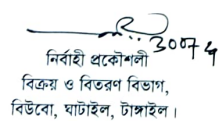 নির্বাহী প্রকৌশলী
বিক্রয় ও বিতরণ বিভাগ,
বিউবো, ঘাটাইল, টাঙ্গাইল।